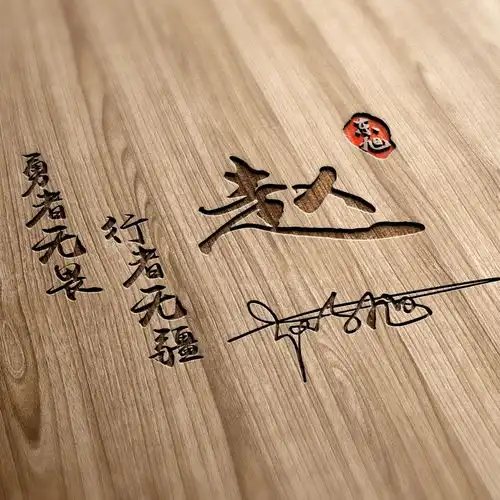 勇者无畏
行者无疆
赵
东旭